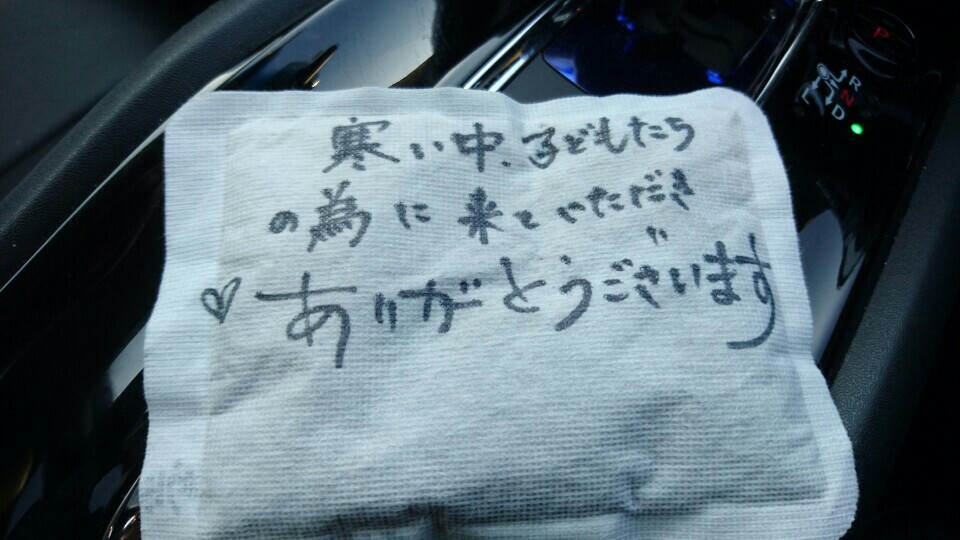 寒い中、子どもたち
の為に来ていただき
♡ありがとうございます
P
R
N
D